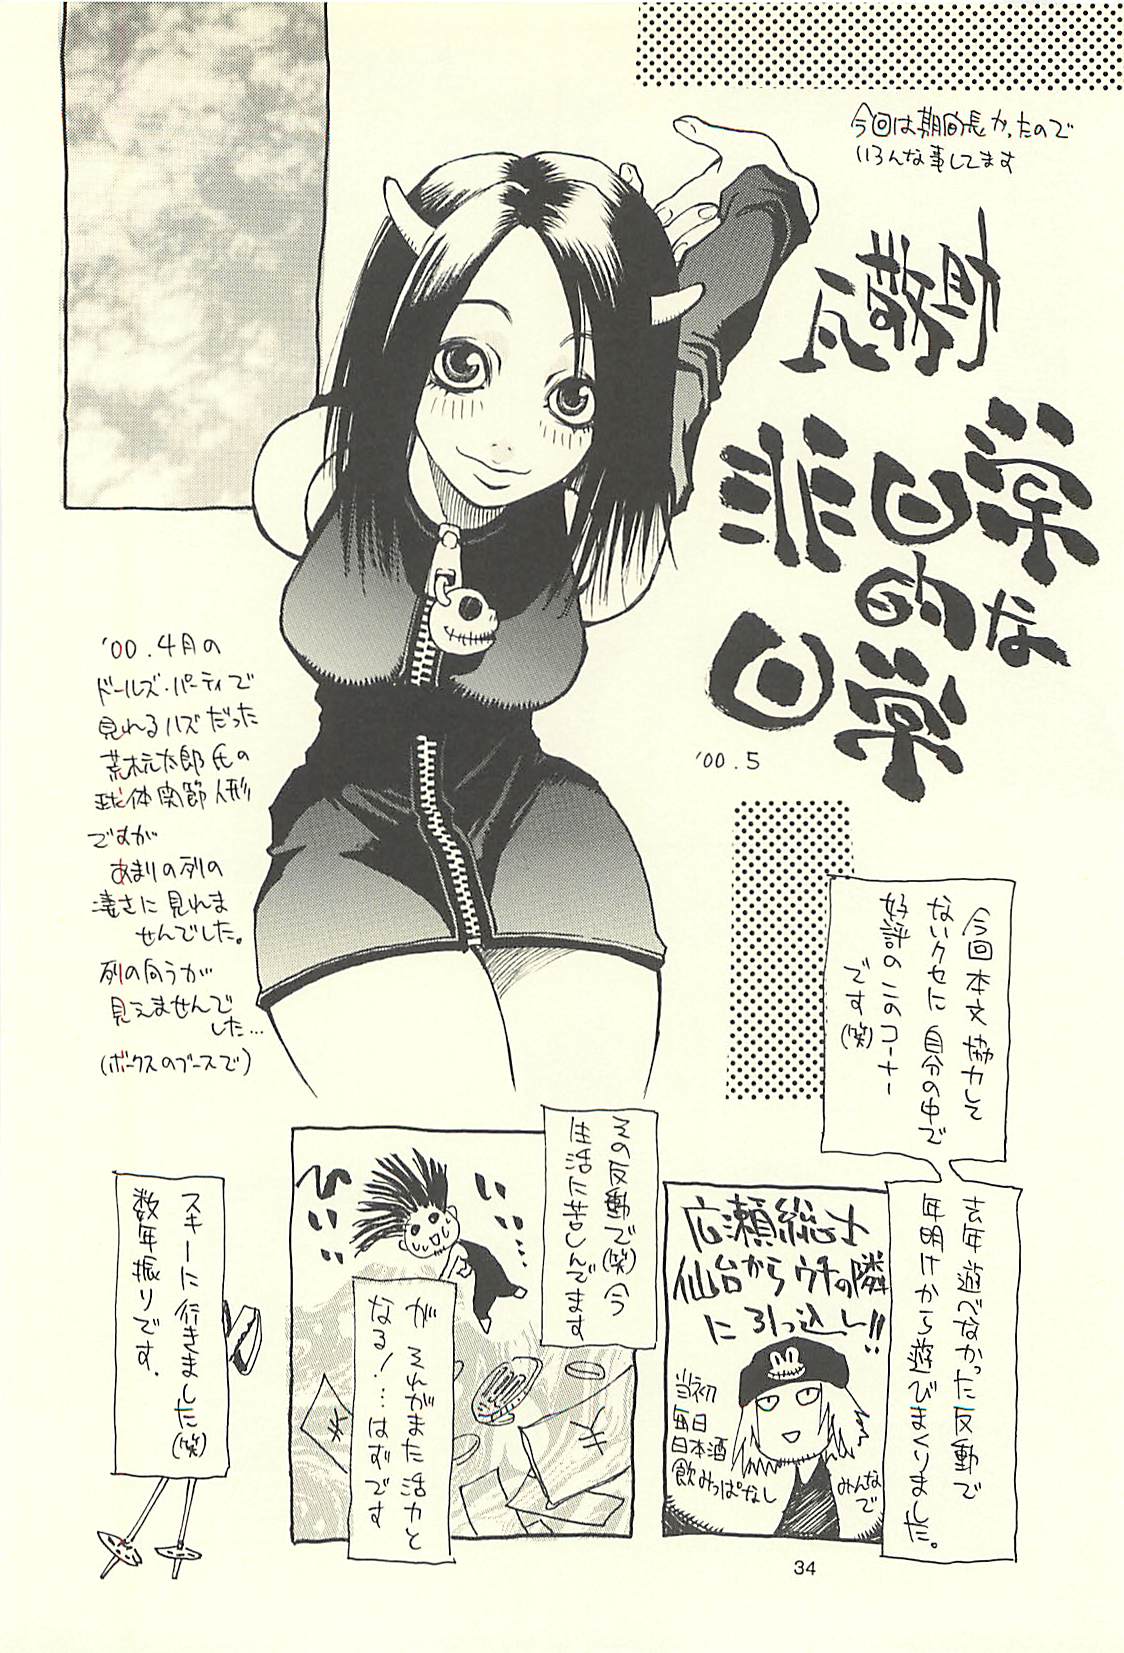 今回は期間長かったので
いろんな事してます
非日常的な日常
'00.5
'00.4月の
ドールズ・パーティで
見れるハズだった
荒木元太郎氏の
球体関節人形
ですが
あまりの列の
凄さに見れま
せんでした。
列の向うが
見えませんで
した…
(ボークスのブースで)
今回本文協力して
ないクセに自分の中で
好評のこのコーナー
です(笑)
去年遊べなかった反動で
年明けから遊びまくりました。
広瀬総士
仙台からウチの隣
に引っ込し!!
当初
毎日
日本酒
飲みっぱなし
みんな
で
その反動で(笑)今
生活に苦しんでます
ひいぃ
いい…
がそれがまた活力と
なる!…はずです
スキーに行きました(笑)
数年振りです.
34